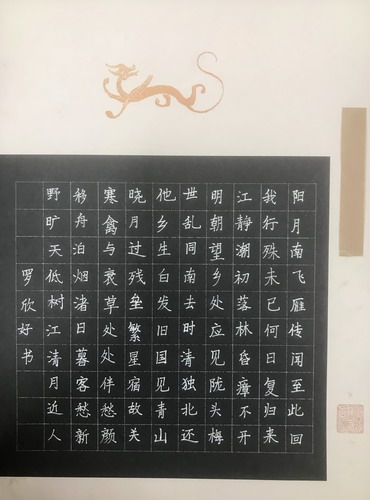 阳月南飞雁传闻至此回
我行殊未已何日复归来
江静潮初落林昏瘴不开
明朝望乡处应见陇头梅
世乱同南去时清独北还
他乡生白发旧国见青山
晓月过残垒繁星宿故关
寒禽与衰草处处伴愁颜
移舟泊烟渚日暮客愁新
野旷天低树江清月近人
罗欣好书